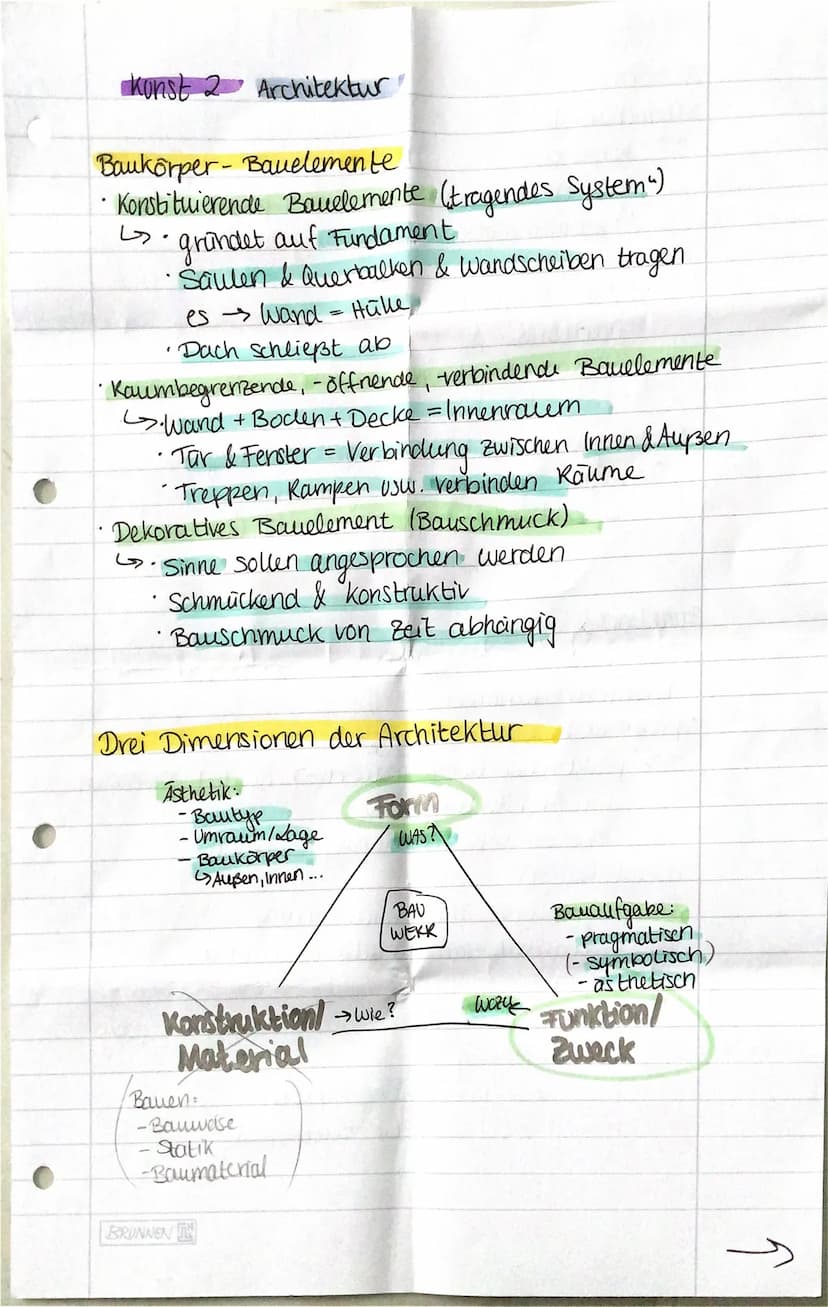 Kunst 2 Architektur
Baukörper - Bauelemente
· Konstituierende Bauelemente („tragendes System“)
↳ · gründet auf Fundament
· Säulen & Querbalken & Wandscheiben tragen
es → Wand = Hülle
· Dach schließt ab
· Raumbegrenzende, -öffnende, -verbindende Bauelemente
↳ · Wand + Boden + Decke = Innenraum
· Tür & Fenster = Verbindung zwischen Innen & Außen
· Treppen, Rampen usw. verbinden Räume
· Dekoratives Bauelement (Bauschmuck)
↳ · Sinne sollen angesprochen werden
· Schmückend & konstruktiv
· Bauschmuck von Zeit abhängig
Drei Dimensionen der Architektur
Ästhetik:
- Bautyp
- Umraum/Lage
- Baukörper
↳ Außen, Innen ...
Form
WAS?
BAU
WERK
Bauaufgabe:
- pragmatisch
(- symbolisch)
- ästhetisch
Konstruktion/
Material
→ Wie?
Wozu ←
Funktion/
Zweck
Bauen:
- Bauweise
- Statik
- Baumaterial
BRUNNEN
→